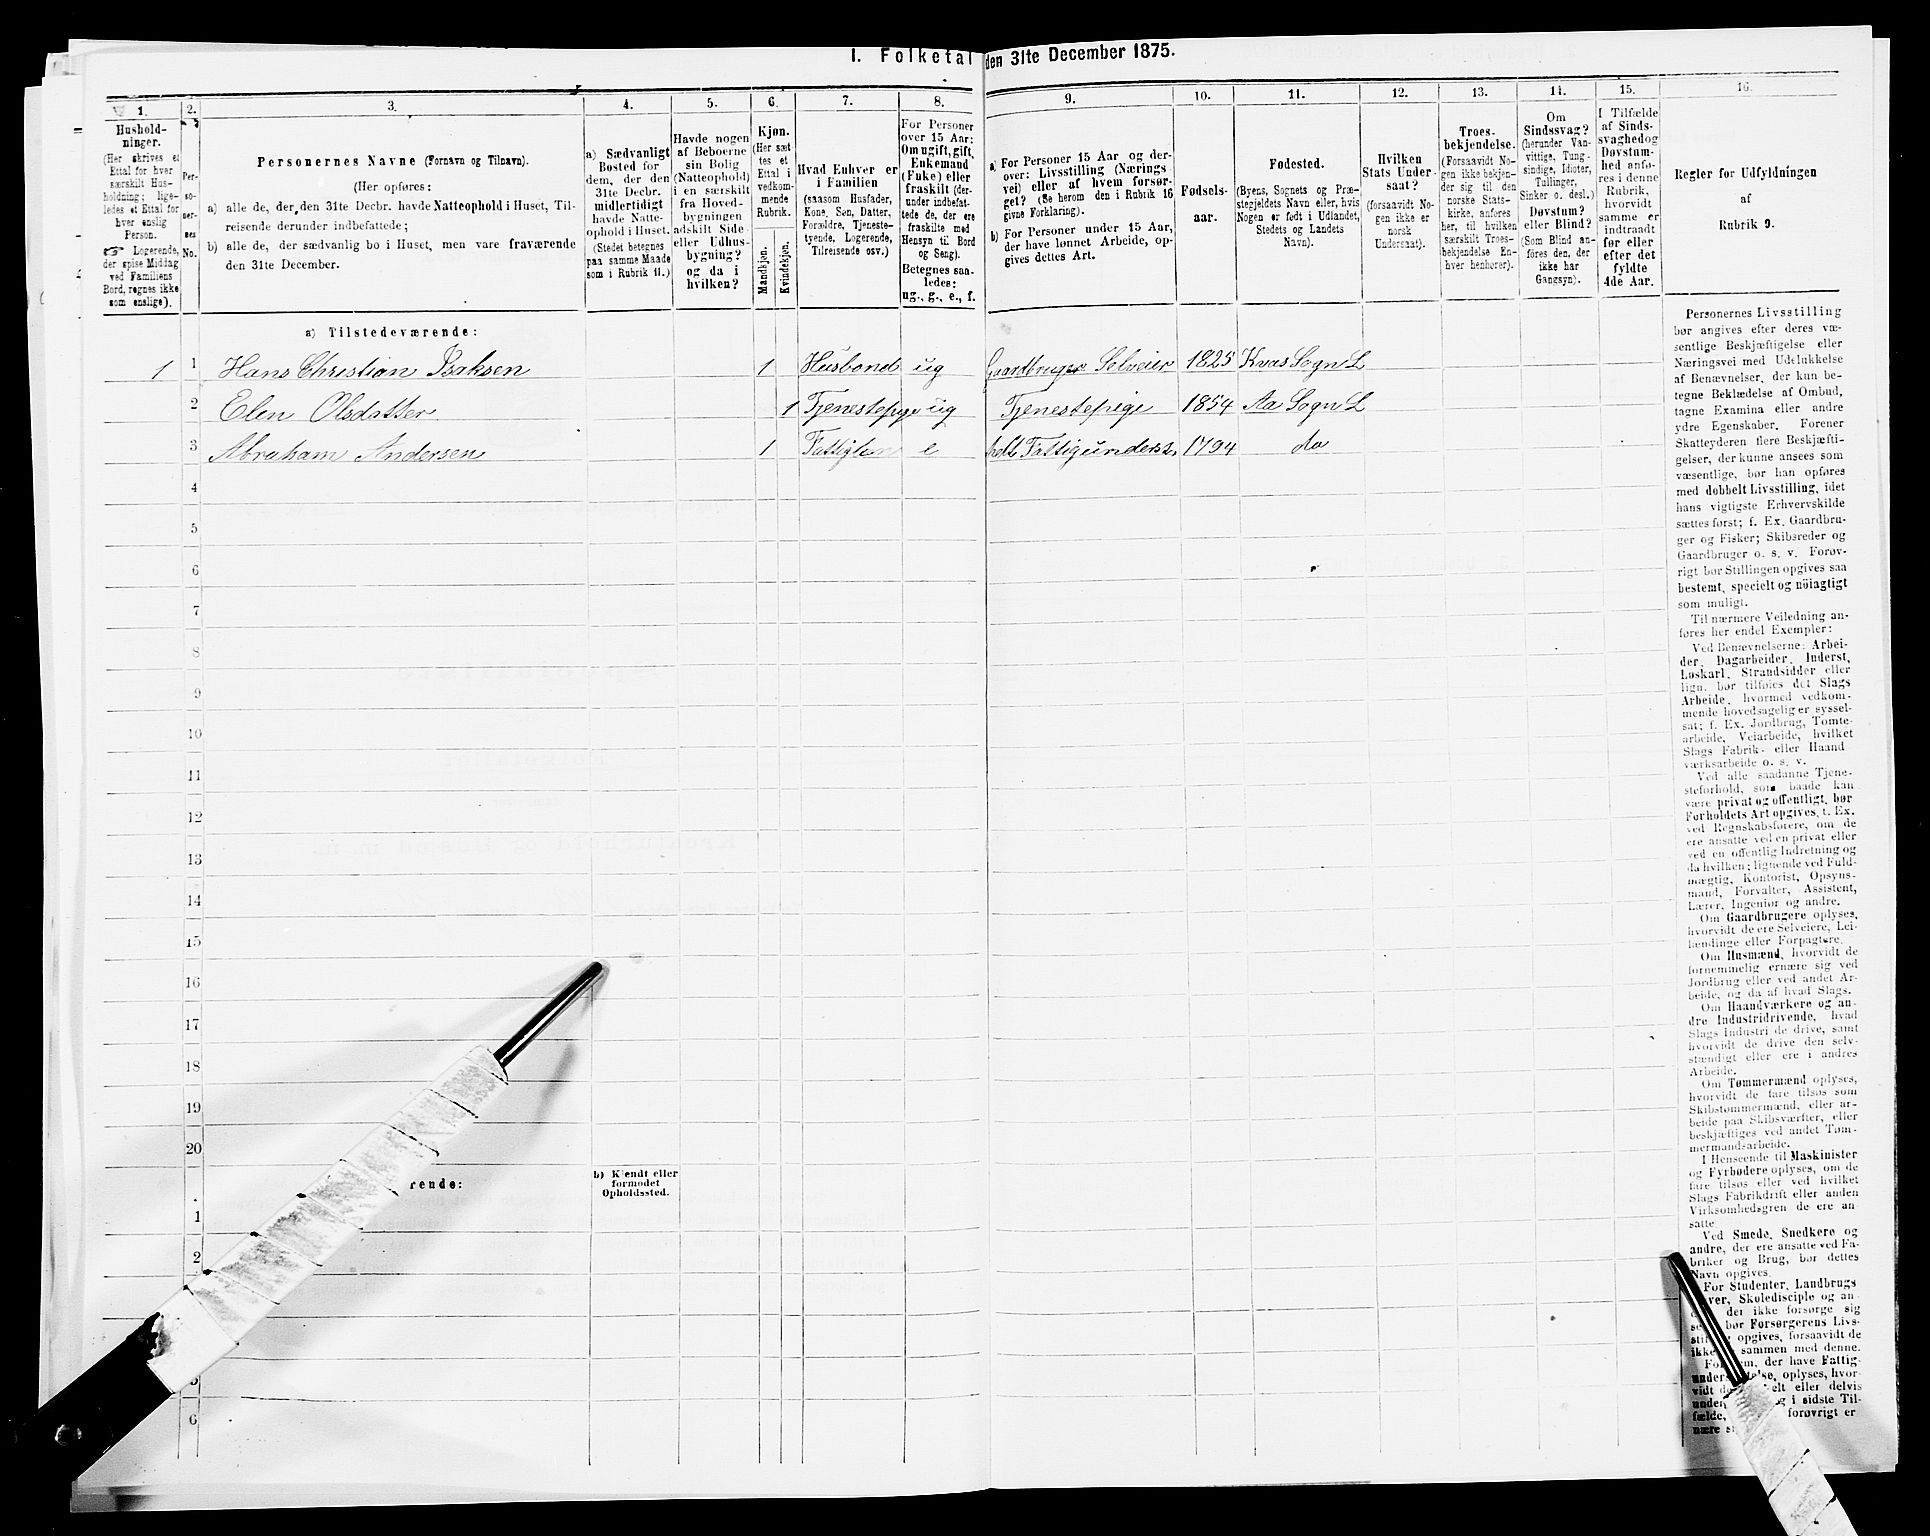 I. Folketal den 31te December 1875.
1.
Hushold-
ninger.
(Her skrives et
Ettal for hver
særskilt Hus-
holdning; lige-
ledes et Ettal for
hver enslig
Person.
☞ Logerende,
der spise Middag
ved Familiens
Bord, regnes ikke
som enslige).
2.
Per-
so-
ner-
nes
No.
3.
Personernes Navne (Fornavn og Tilnavn).
(Her opføres:
a) alle de, der den 31te Decbr. havde Natteophold i Huset, Til-
reisende derunder indbefattede;
b) alle de, der sædvanlig bo i Huset, men vare fraværende
den 31te December.
4.
a) Sædvanligt
Bosted for
dem, der den
31te Decbr.
midlertidigt
havde Natte-
ophold i Huset.
(Stedet betegnes
paa samme Maade
som i Rubrik 11.)
5.
Havde nogen
af Beboerne
sin Bolig
(Natteophold)
i en særskilt
fra Hoved-
bygningen
adskilt Side-
eller Udhus-
bygning?
og da i
hvilken?
6.
Kjøn.
(Her sæt
tes et
Ettal i
vedkom-
mende
Rubrik.
Mandkjøn.
Kvindekjøn.
7.
Hvad Enhver er
i Familien
(saasom Husfader,
Kone, Søn, Datter,
Forældre, Tjeneste-
tyende, Logerende,
Tilreisende osv.)
8.
For Personer
over 15 Aar:
Om ugift, gift,
Enkemand
(Enke) eller
fraskilt (der-
under indbefat-
tede de, der ere
fraskilte med
Hensyn til Bord
og Seng).
Betegnes saa-
ledes:
ug., g., e., f.
9.
a) For Personer 15 Aar og der-
over: Livsstilling (Nærings
vei) eller af hvem forsør-
get? (Se herom den i Rubrik 16
givne Forklaring).
b) For Personer under 15 Aar,
der have lønnet Arbeide, op-
gives dettes Art.
10.
Fødsels-
aar.
11.
Fødested.
(Byens, Sognets og Præ-
stegjeldets Navn eller, hvis
Nogen er født i Udlandet,
Stedets og Landets
Navn).
12.
Hvilken
Stats Under-
saat?
(forsaavidt No-
gen ikke er
norsk
Undersaat).
13.
Troes-
bekjendelse.
(Forsaavidt No-
gen ikke bekjen-
der sig til den
norske Stats-
kirke, anføres
her, til hvilken
særskilt Troes-
bekjendelse En-
hver henhører).
14.
Om
Sindssvag?
(herunder Van-
vittige, Tung-
sindige, Idioter,
Tullinger,
Sinker o. desl.)
Døvstum?
eller Blind?
(Som Blind an-
føres den, der
ikke har
Gangsyn).
15.
I Tilfælde
af Sinds-
svaghed og
Døvstum-
hed anfø-
res i denne
Rubrik,
hvorvidt
samme er
indtraadt
før eller
efter det
fyldte
4de Aar.
16.
Regler for Udfyldningen
af
Rubrik 9.
a) Tilstedeværende:
1 1 Hans Christian Isaksen 1 Husbond ug Gaardbruger Selveier 1825 Kvas Sogn L
2 Elen Olsdatter 1 Tjenestepige ug Tjenestepige 1854 Aa Sogn L
3 Abraham Andersen 1 Fattiglem e helt Fattigunderst. 1794 do
4
5
6
7
8
9
10
11
12
13
14
15
16
17
18
19
20
rende:
b) Kjendt eller
formodet
Opholdssted.
1
2
6
Personernes Livsstilling
bør angives efter deres væ-
sentlige Beskjæftigelse eller
Næringsvei med Udelukkelse
af Benævnelser, der kun be-
tegne Beklædelse af Ombud,
tagne Examina eller andre
ydre Egenskaber. Forener
Skatteyderen flere Beskjæfti-
gelser, der kunne ansees som
væsentlige, bør han opføres
med dobbelt Livsstilling, idet
hans vigtigste Erhvervskilde
sættes først; f. Ex. Gaardbru-
ger og Fisker; Skibsreder og
Gaardbruger o. s. v. Forøv-
rigt bør Stillingen opgives saa
bestemt, specielt og nöiagtigt
som muligt.
Til nærmere Veiledning an-
føres her endel Exempler:
Ved Benævnelserne: Arbei-
der, Dagarbeider, Inderst,
Løskarl, Strandsidder eller
lign. bør tilføies det Slags
Arbeide, hvormed vedkom-
mende hovedsagelig er syssel-
sat; f. Ex. Jordbrug, Tomte-
arbeide, Veiarbeide, hvilket
Slags Fabrik- eller Haand
værksarbeide o. s. v.
Ved alle saadanne Tjene-
steforhold, som baade kan
være privat og offentligt, bør
Forholdets Art opgives, t. Ex.
ved Regnskabsførere, om de
ere ansatte ved en privat eller
ved en offentlig Indretning og
da hvilken; lignende ved Fuld-
mægtig, Kontorist, Opsyns-
mand, Forvalter, Assistent,
Lærer, Ingeniør og andre.
Om Gaardbrugere oplyses,
hvorvidt de ere Selveiere, Lei-
lændinge eller Forpagtere.
Om Husmænd, hvorvidt de
fornemmelig ernære sig ved
Jordbrug eller ved andet Ar-
beide, og da af hvad Slags.
Om Haandværkere og an-
dre Industridrivende, hvad
Slags Industri de drive, samt
hvorvidt de drive den selv-
stændigt eller ere i andres
Arbeide.
Om Tømmermænd oplyses,
hvorvidt de fare tilsøs som
Skibstømmermænd, eller ar-
beide paa Skibsværfter, eller
beskjæftiges ved andet Tøm-
mermandsarbeide.
I Henseende til Maskinister
og Fyrbødere oplyses, om de
fare tilsøs eller ved hvilket
Slags Fabrikdrift eller anden
Virksomhedsgren de ere an-
satte
Ved Smede, Snedkere og
andre, der ere ansatte ved Fa-
briker og Brug, bør dettes
Navn opgives.
For Studenter, Landbrugs
ver, Skoledisciple og an-
der ikke forsørge sig
bør Forsørgerens Livs-
opgives, forsaavidt de
ikke sammen med denne.
der have Fattig-
oplyses, hvor-
vidt elt eller delvis
i sidste Til-
fælde, forøvrigt er